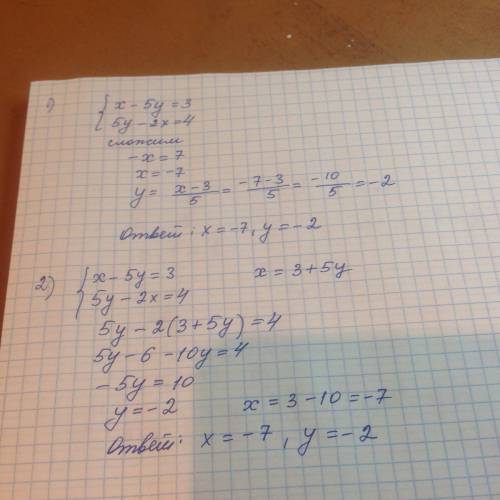 1) { x - 5y = 3
5y - 2x = 4
сложим
-x = 7
x = -7
y = (x-3)/5 = (-7-3)/5 = (-10)/5 = -2
Ответ: x = -7, y = -2
2) { x - 5y = 3 x = 3 + 5y
5y - 2x = 4
5y - 2(3 + 5y) = 4
5y - 6 - 10y = 4
-5y = 10
y = -2 x = 3 - 10 = -7
Ответ: x = -7, y = -2